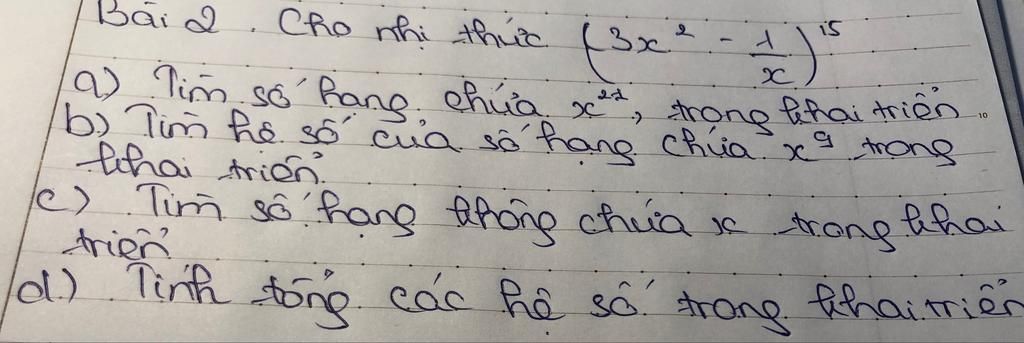 Bài 2. Cho nhị thức (3x² - 1/x)¹⁵
a) Tìm số hạng chứa x²⁷, trong khai triển
b) Tìm hệ số của số hạng chứa x⁹ trong
khai triển.
c) Tìm số hạng không chứa x trong khai
triển
d) Tính tổng các hệ số trong khai triển